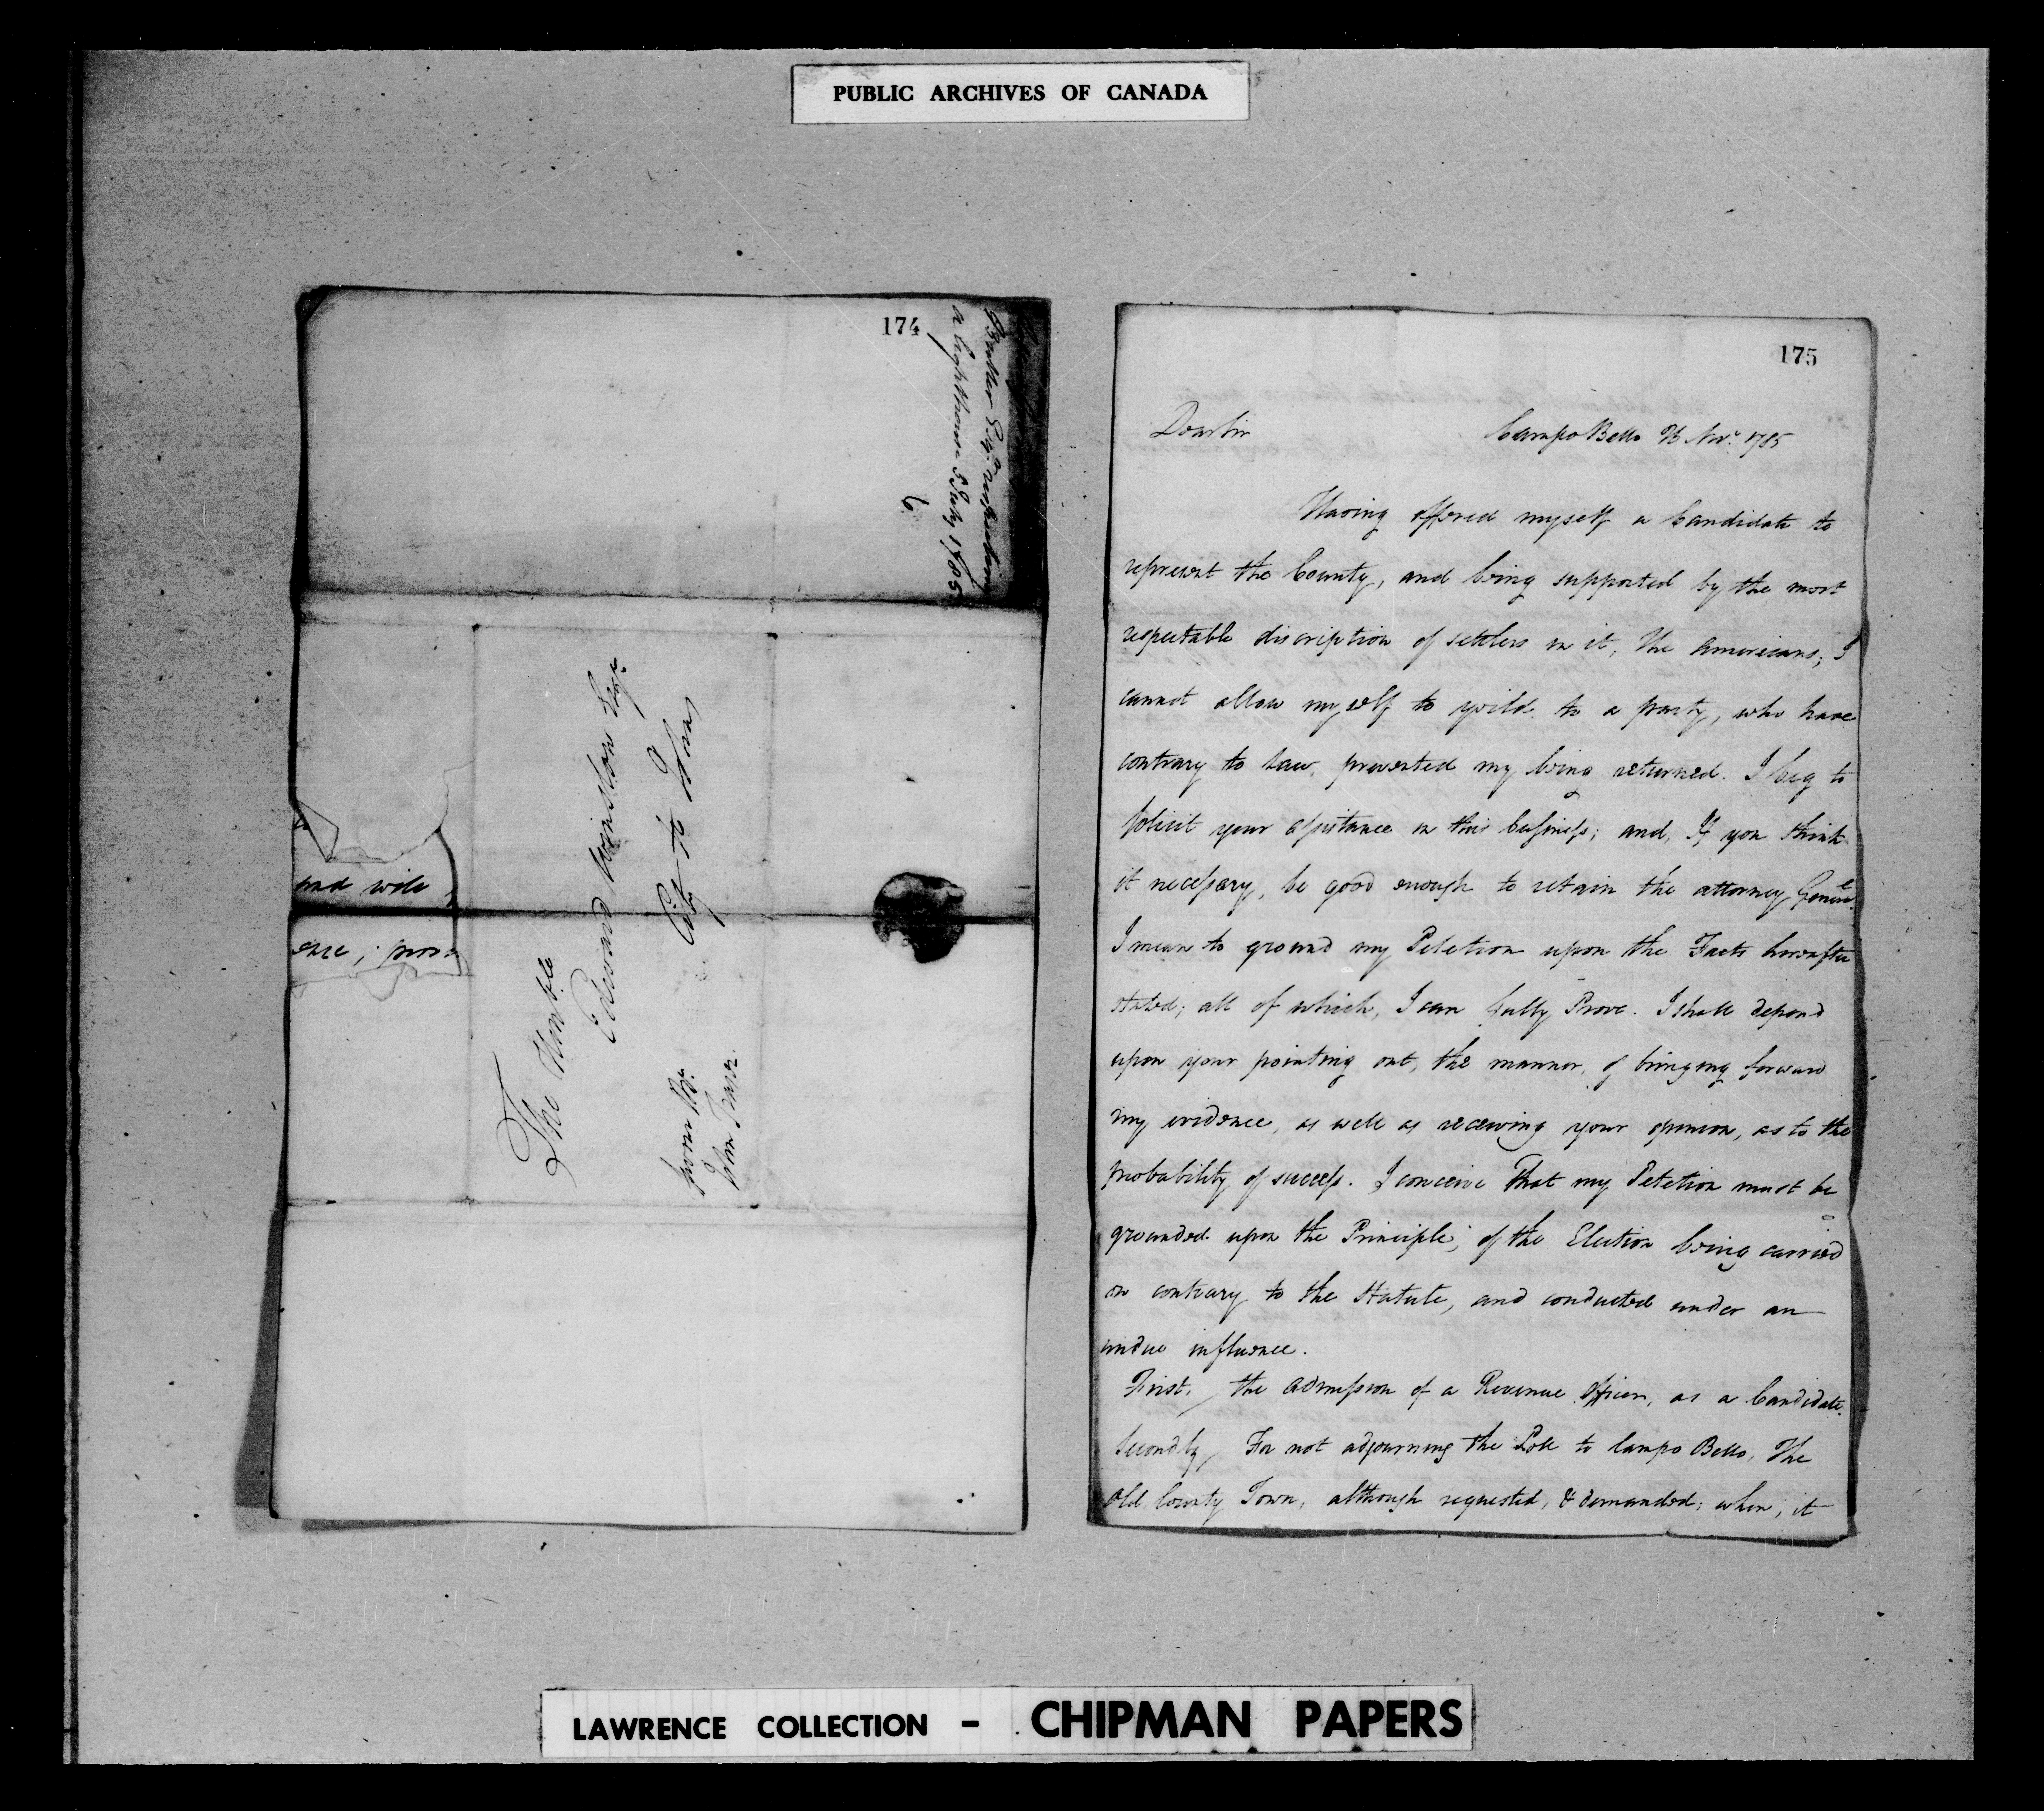 PUBLIC ARCHIVES OF CANADA
174
Butler Esqr. respecting
a lighthouse 5 July 1785
6
and will
ence; pro
The Honble
Edward Winslow Esqr.
City St. John
175
Dear Sir Campo Bello Novr. 1785
Having offered myself a Candidate to
represent the County, and being supported by the most
respectable discription of settlers in it, the Americans; I
cannot allow myself to yeild to a party, who have
contrary to Law, prevented my being returned. I beg to
solicit your assistance in this business; and, If you think
it necessary, be good enough to retain the attorney Generl.
I mean to ground my Petetion upon the Facts hereafter
stated; all of which, I can fully Prove. I shall depend
upon your pointing out, the manner, of bringing forward
my evidence, as well as receiving your opinion, as to the
probability of success. I conceive That my Petetion must be
grounded upon the Principle, of the Election being carried
on contrary to the Statute, and conducted under an
undue influence.
First, the admission of a Revenue Officer, as a Candidate.
Secondly, For not adjourning the Poll to Campo Bello, The
Old County Town, although requested, & demanded; when, it
LAWRENCE COLLECTION - CHIPMAN PAPERS